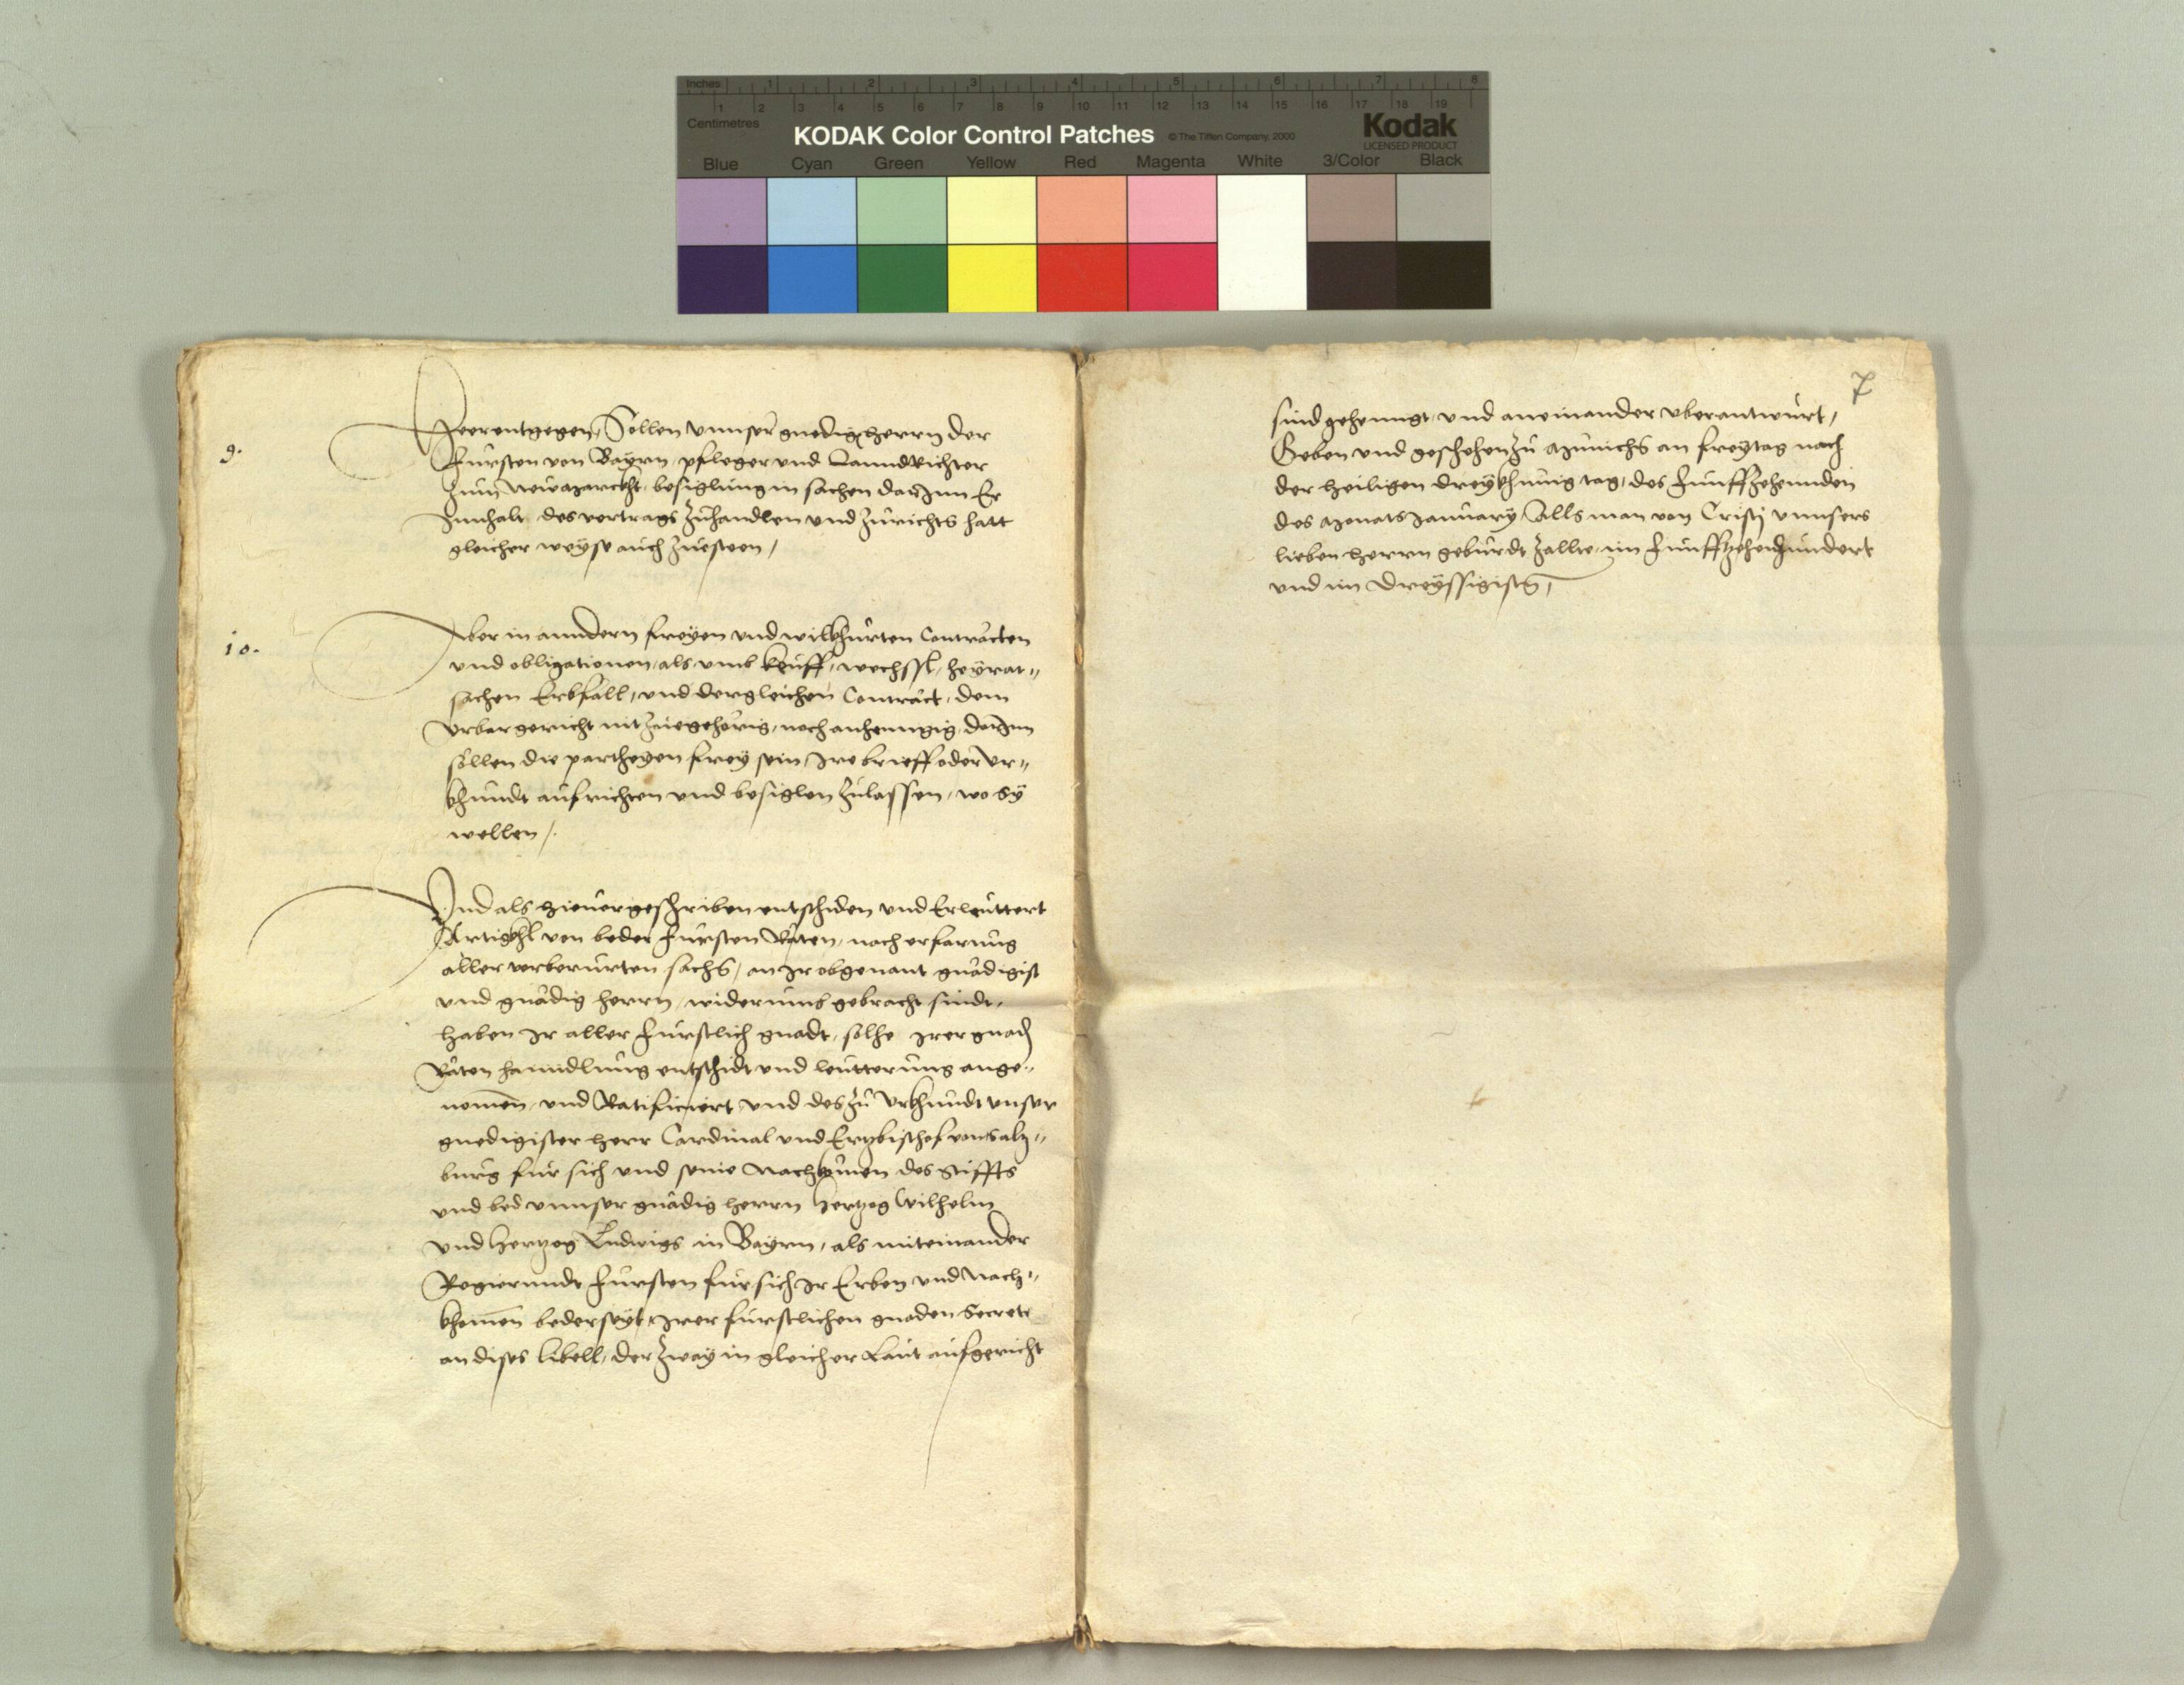 Inches 1 2 3 4 5 6 7 8
1 2 3 4 5 6 7 8 9 10 11 12 13 14 15 16 17 18 19
Centimetres
KODAK Color Control Patches © The Tiffen Company, 2000 Kodak
LICENSED PRODUCT
Blue Cyan Green Yellow Red Magenta White 3/Color Black
9.
Heerentgegen, Sollen vnnser gnedig herrn der
Fürsten von Bayrn, pfleger vnd Lanndtrichter
zum Newmarckht, besiglung in sachen darinn Er
Innhalt des vertrags zuhandlen vnd zurichts hatt
gleicher weyse auch zuesteen /
10.
Aber in anndern freyen vnd wilkhurten Contracten
vnd obligationen, als vmb keuff, wechssl, heyrat„
sachen Erbfall, vnd dergleichen Contract, dem
vrbar gericht nit zuegehörig, noch anhenngig, darinn
söllen die partheyen frey sein, Ire brieff oder vr„
khundt aufrichten vnd besiglen zulassen, wo sy
wellen /.
Vnd als hieuor geschriben entschiden vnd Erleuttert
Artigkhl von beder Fürsten Räten, nach erfarung
aller verberurten sachs, an Ir obgenant gnädigist
vnd gnädig herrn, widerumb gebracht sindt,
haben Ir aller Fürstlich gnadt, solhe Irer gnaden
Räten hanndlung entschidt vnd leutterung ange„
nomen, vnd Ratificiert vnd des zu vrkhundt vnser
gnedigister herr Cardinal vnd Ertzbischof von Saltz„
burg für sich vnd seine Nachkomen des Stiffts
vnd bed vnnser gnädig herrn Hertzog Wilhelm
vnd Hertzog Ludwigs in Bayrn, als miteinander
Regierundt Fürsten für sich Ir Erben vnd Nach„
khomen bederseyt Irer fürstlichen gnaden Secrete
an dises libell, der zway in gleicher Laut aufgericht
7
sind gehenngt, vnd aneinander vberantwurt,
Geben vnd geschehen zu Münichs an freytag nach
der heiligen dreykhunig tag, des Funffzehennden
des Monats January, Alls man von Cristj vnnsers
lieben herrn geburdt zallte, im Funfftzehenhundert
vnd im Dreyssigistn,